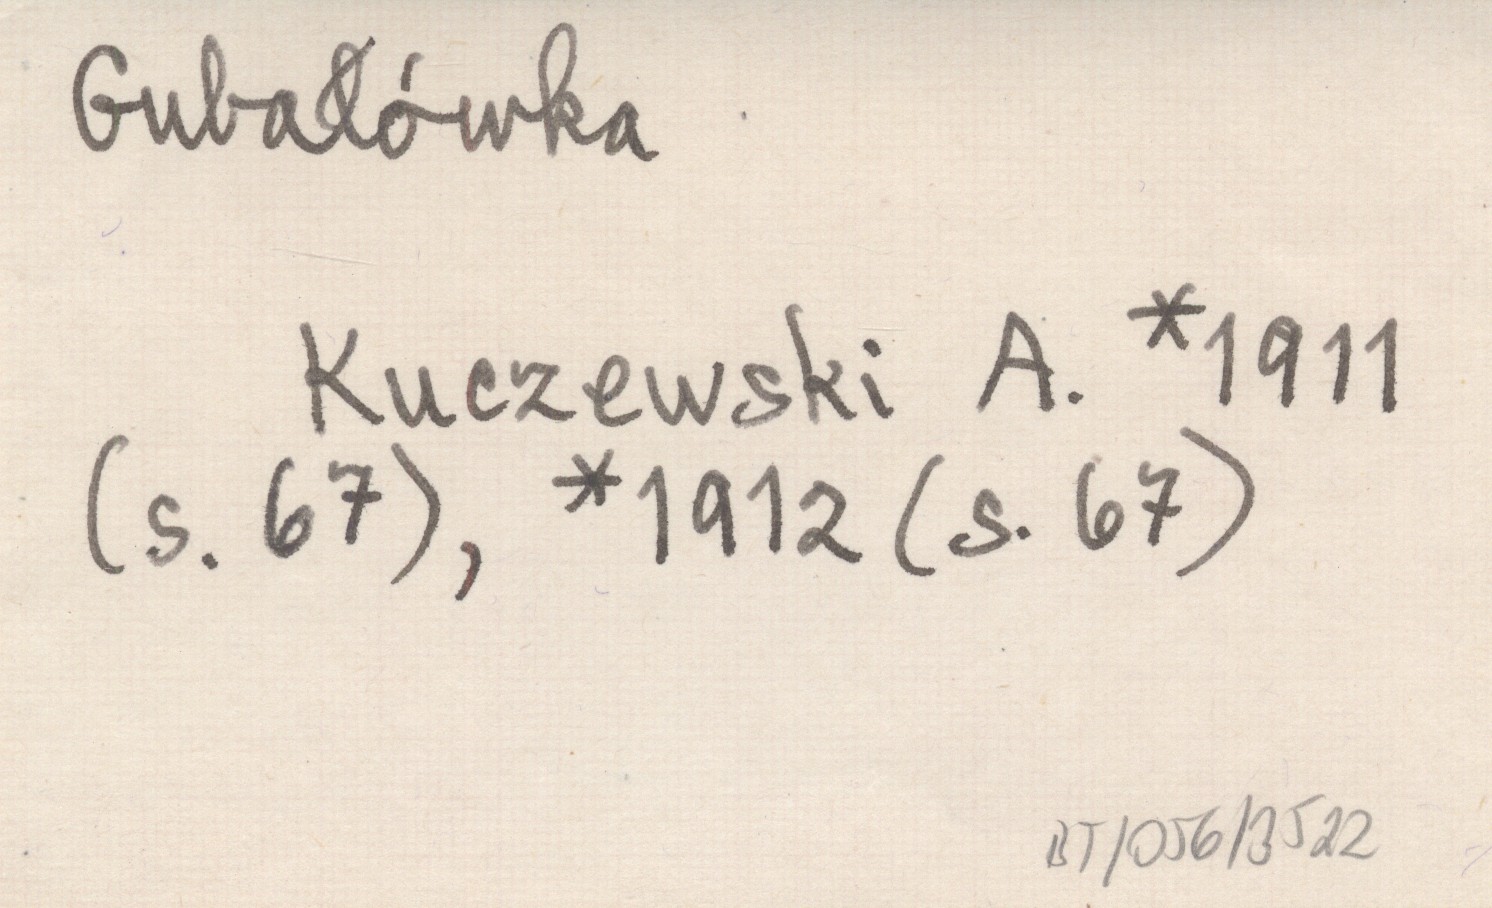 Gubałówka
Kuczewski A. *1911
(s. 67), *1912 (s. 67)
BT/056/3522